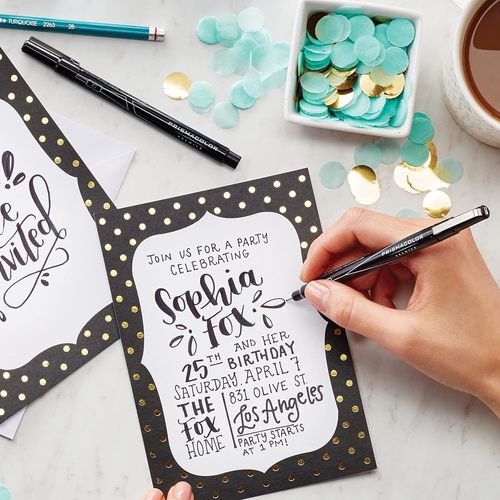 TURQUOISE
PRISMACOLOR
PREMIER
invited
JOIN US FOR A PARTY
CELEBRATING
Sophia
Fox
AND HER
25TH BIRTHDAY
SATURDAY, APRIL 7
THE
FOX
HOME
831 OLIVE ST.
Los Angeles
PARTY STARTS
AT 1 PM!
PRISMACOLOR
PREMIER